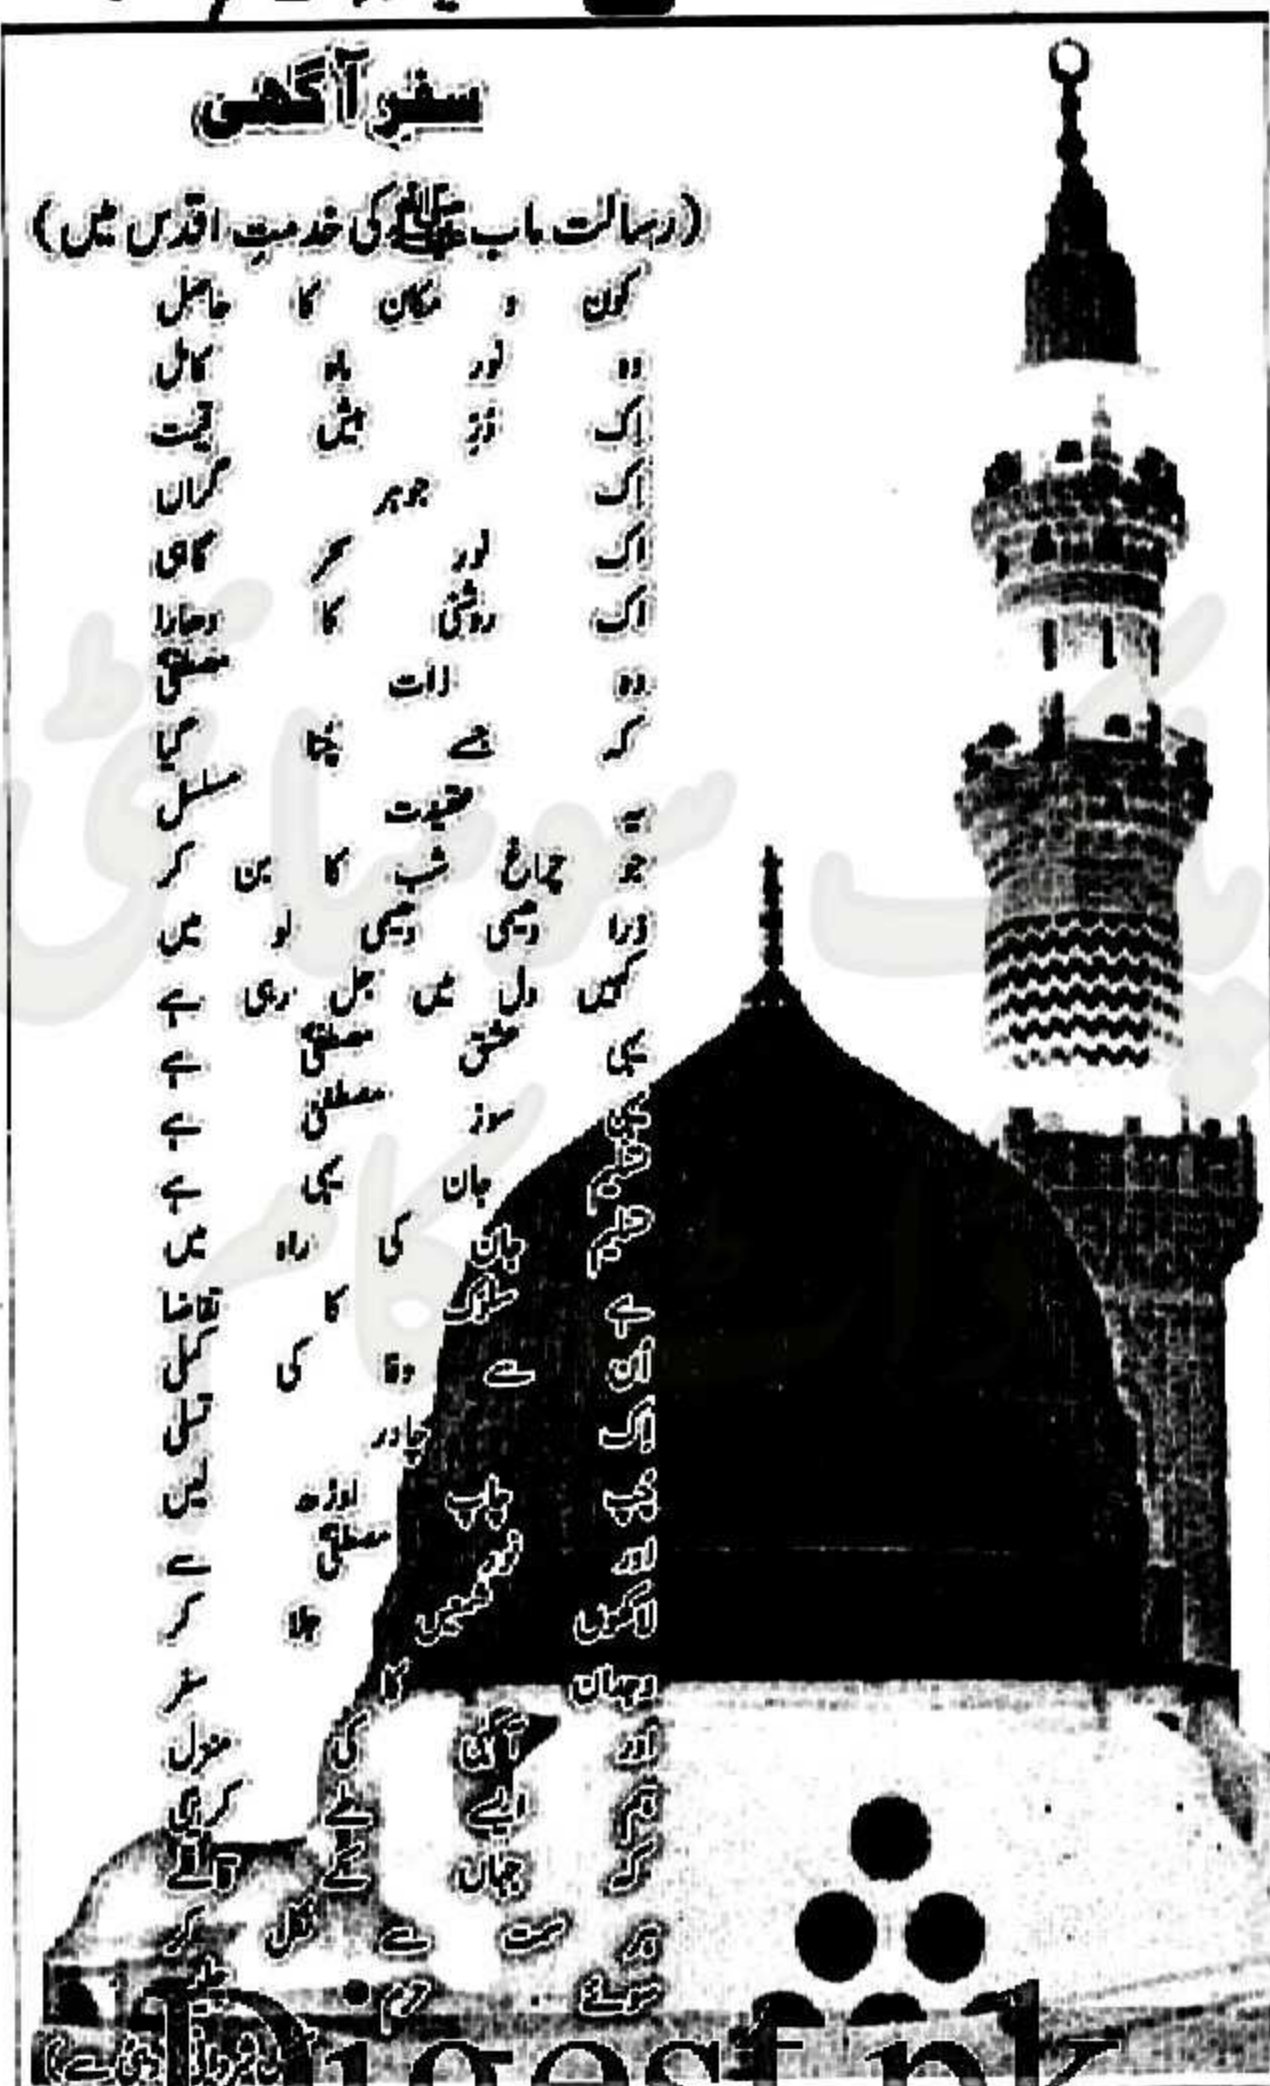 سفرِ آگھی
(رسالت ماب ﷺ کی خدمتِ اقدس میں)
کون و مکان کا حاصل
وہ نور ماہ کامل
اک دُرِ بیش قیمت
اک جوہر گراں
اک نور سحر گاہی
اک روشنی کا دھارا
وہ ذات مصطفیٰ
کہ جسے چنا گیا
یہ عقیدت مسلسل
جو چراغ شب کا بن کر
ذرا دھیمی دھیمی لو میں
کہیں دل میں جل رہی ہے
یہی عشق مصطفیٰ ہے
یہی سوز مصطفیٰ ہے
تسلیم جان یہی ہے
تسلیم جان کی راہ میں
ہے سلوک کا تقاضا
ان سے وفا کی کملی
اک چادر تسلی
چپ چاپ اوڑھ لیں
اور نور مصطفیٰ سے
لاکھوں شمعیں جلا کر
وجہان کا سفر
اور آگہی کی منزل
ایسے طے کریں
کہ جہاں کے آگے
ہر سمت سے نکل کر
سوئے حرم چلیں
Digest.pk
پاک سوسائٹی
ڈاٹ کام